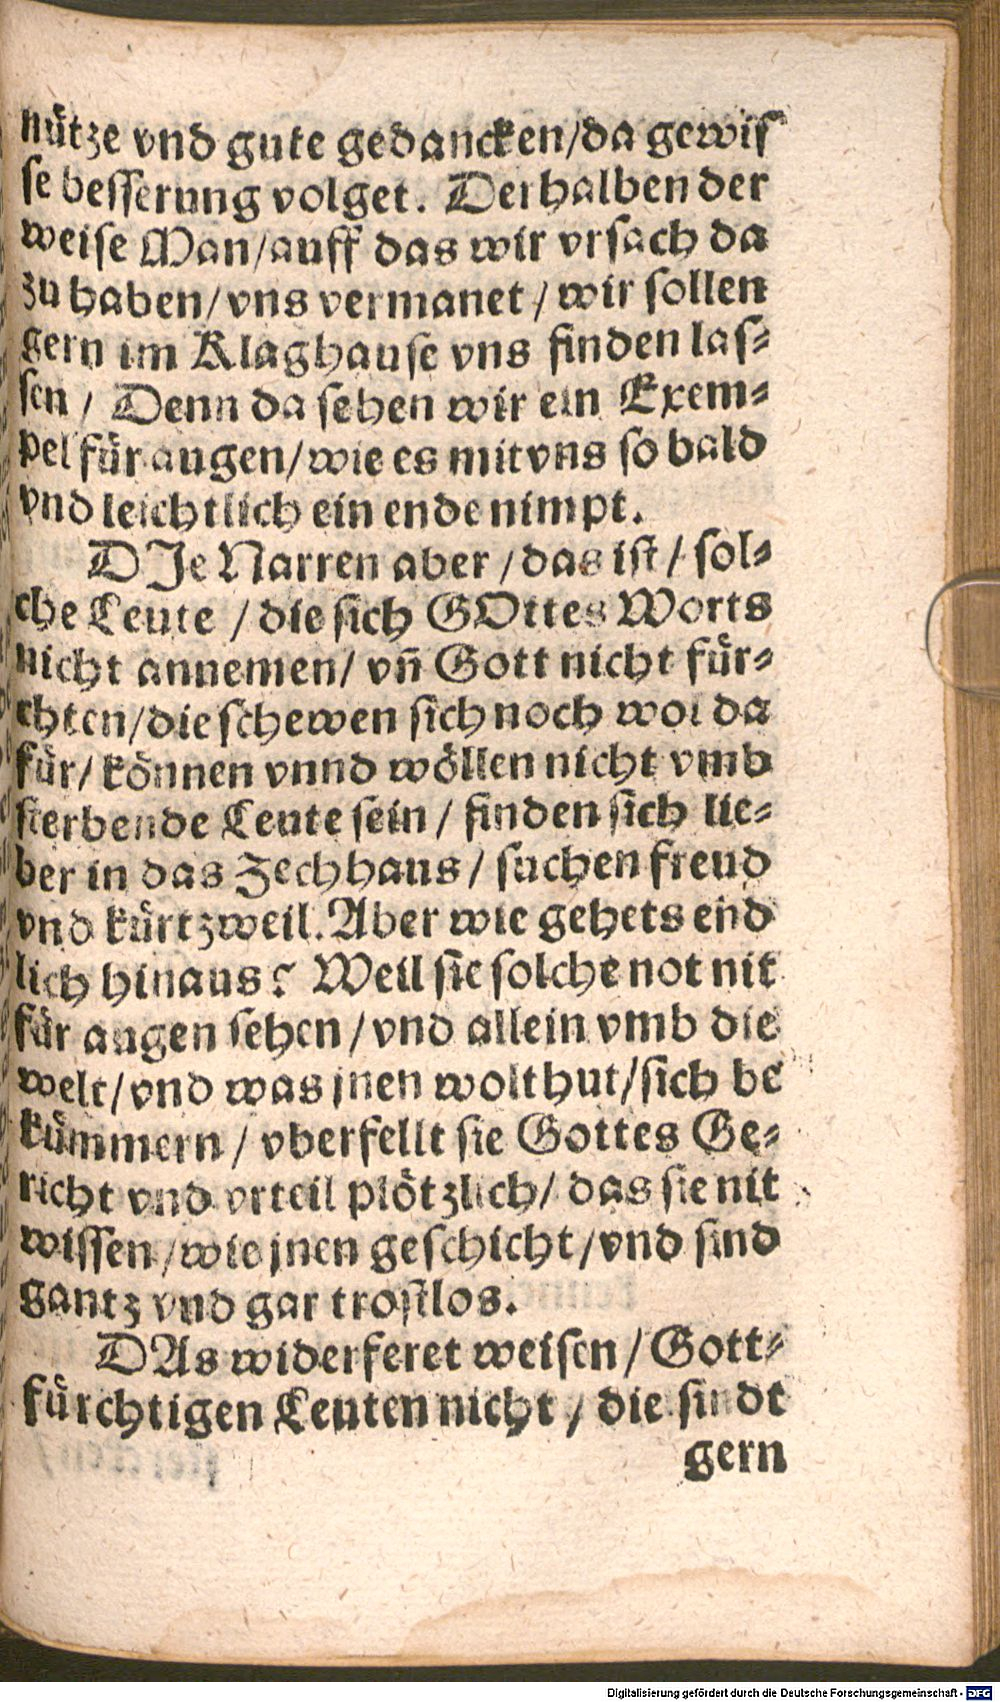 nütze vnd gute gedancken/da gewis
se besserung volget. Derhalben der
weise Man/auff das wir vrsach da
zu haben/vns vermanet/wir sollen
gern im Klaghause vns finden las⸗
sen/ Denn da sehen wir ein Exem⸗
pel für augen/wie es mit vns so bald
vnd leichtlich ein ende nimpt.
DJe Narren aber/das ist/sol⸗
che Leute/die sich GOttes Worts
nicht annemen/vn̄ Gott nicht für⸗
chten/die schewen sich noch wol da
für/können vnnd wöllen nicht vmb
sterbende Leute sein/finden sich lie⸗
ber in das Zechhaus/suchen freud
vnd kürtzweil. Aber wie gehets end
lich hinaus? Weil sie solche not nit
für augen sehen/vnd allein vmb die
welt/vnd was jnen wolthut/sich be
kümmern/vberfellt sie Gottes Ge⸗
richt vnd vrteil plötzlich/das sie nit
wissen/wie jnen geschicht/vnd sind
gantz vnd gar trostlos.
DAs widerferet weisen/Gott⸗
fürchtigen Leuten nicht/die sindt
gern
Digitalisierung gefördert durch die Deutsche Forschungsgemeinschaft - DFG